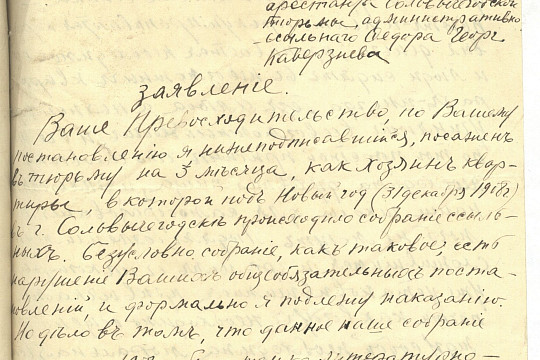 арестанта Сольвычегодской
тюрьмы, административно-
ссыльнаго Ѳедора Георг.
Каверзнева
Заявленіе.
Ваше Превосходительство, по Вашему
постановленію я нижеподписавшійся, посаженъ
въ тюрьму на 3 мѣсяца, какъ хозяинъ квар-
тиры, въ которой подъ Новый годъ (31 декабря 1908 г)
въ г. Сольвычегодскѣ происходило собраніе ссыль-
ныхъ. Безусловно, собраніе, какъ таковое, есть
нарушеніе Вашихъ общеобязательныхъ поста-
новленій, и формально я подлежу наказанію.
Но дѣло въ томъ, что данное наше собраніе
литературно-